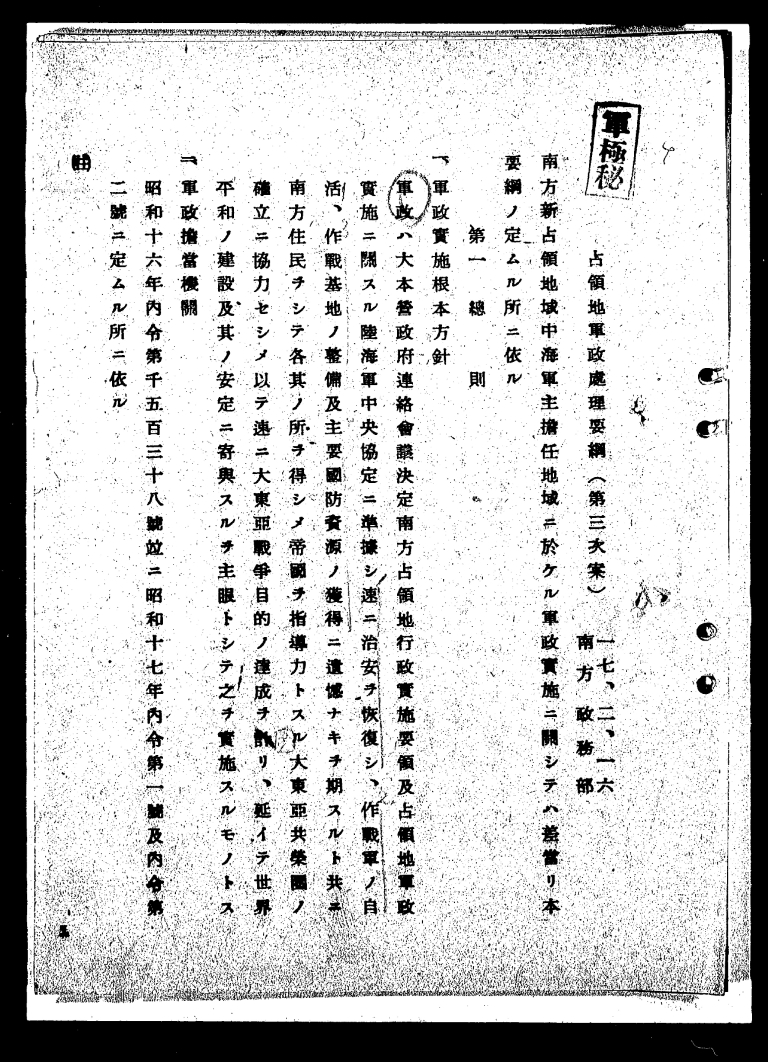 軍極秘
占領地軍政處理要綱(第三次案)
一七、二、一六
南方政務部
南方新占領地域中海軍主擔任地域ニ於ケル軍政實施ニ關シテハ差當リ本
要綱ノ定ムル所ニ依ル
第一 總則
一、軍政實施根本方針
軍政ハ大本營政府連絡會議決定南方占領地行政實施要領及占領地軍政
實施ニ關スル陸海軍中央協定ニ準據シ速ニ治安ヲ恢復シ、作戰軍ノ自
活、作戰基地ノ整備及主要國防資源ノ獲得ニ遺憾ナキヲ期スルト共ニ
南方住民ヲシテ各其ノ所ヲ得シメ帝國ヲ指導力トスル大東亞共榮圈ノ
確立ニ協力セシメ以テ速ニ大東亞戰爭目的ノ達成ヲ計リ、延イテ世界
平和ノ建設及其ノ安定ニ寄與スルヲ主眼トシテ之ヲ實施スルモノトス
二、軍政擔當機關
昭和十六年内令第千五百三十八號竝ニ昭和十七年内令第一號及内令第
二號ニ定ムル所ニ依ル